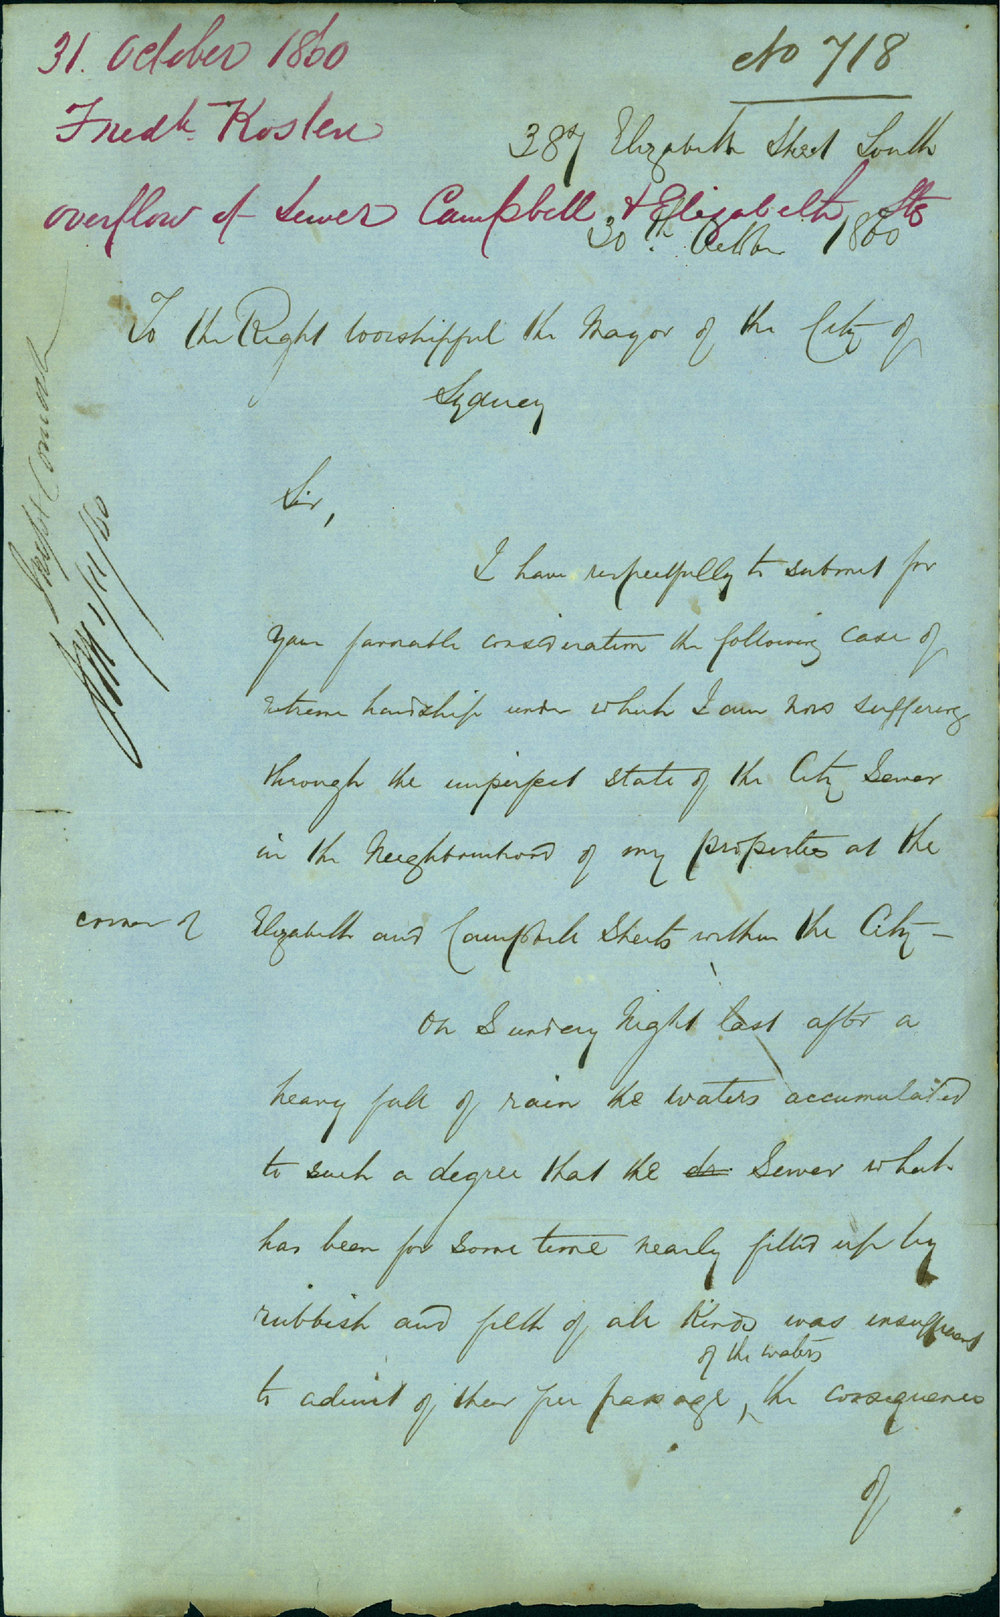 31. October 1860
No 718
Fredk. Kosten
387 Elizabeth Street South
overflow of Sewer Campbell & Elizabeth Sts
30th October 1860
To the Right Worshipful the Mayor of the City of
Sydney
Sir,
I have respectfully to submit for
your favorable consideration the following case of
extreme hardship under which I am now suffering
through the imperfect state of the City Sewer
in the Neighbourhood of my properties at the
corner of Elizabeth and Campbell Streets within the City –
On Sunday Night last after a
heavy fall of rain the waters accumulated
to such a degree that the Sewer which
has been for some time nearly filled up by
rubbish and filth of all kinds was insufficient
of the waters
to admit of their free passage, the consequences
of
1/11/60